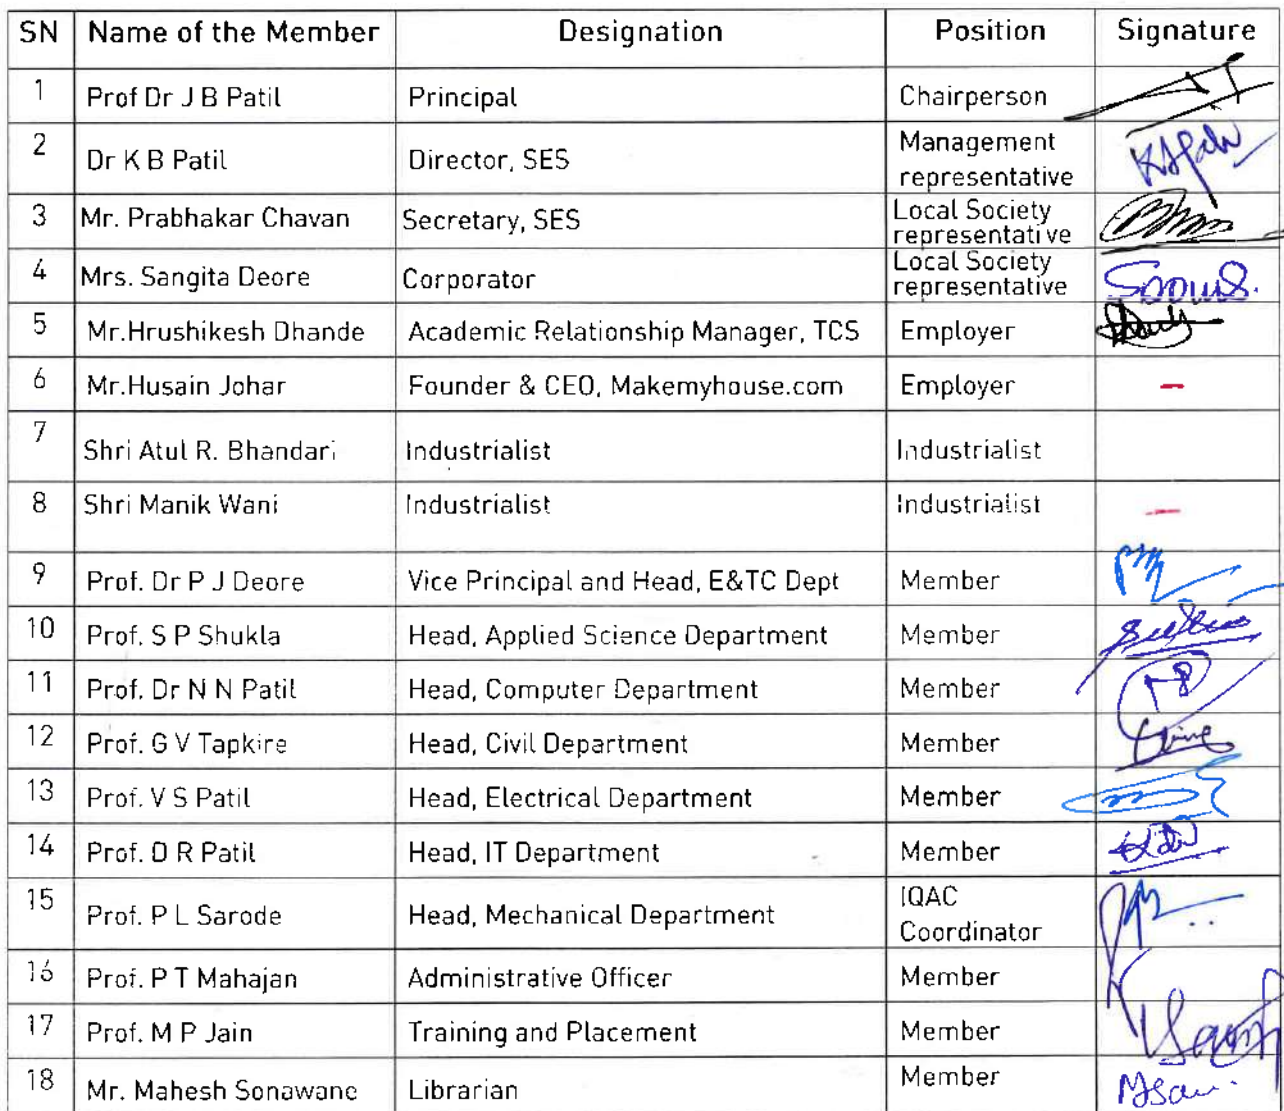 SN Name of the Member Designation Position Signature
1 Prof Dr J B Patil Principal Chairperson
2 Dr K B Patil Director, SES Management
representative
3 Mr. Prabhakar Chavan Secretary, SES Local Society
representative
4 Mrs. Sangita Deore Corporator Local Society
representative
5 Mr.Hrushikesh Dhande Academic Relationship Manager, TCS Employer
6 Mr.Husain Johar Founder & CEO, Makemyhouse.com Employer –
7 Shri Atul R. Bhandari Industrialist Industrialist
8 Shri Manik Wani Industrialist Industrialist –
9 Prof. Dr P J Deore Vice Principal and Head, E&TC Dept Member
10 Prof. S P Shukla Head, Applied Science Department Member
11 Prof. Dr N N Patil Head, Computer Department Member
12 Prof. G V Tapkire Head, Civil Department Member
13 Prof. V S Patil Head, Electrical Department Member
14 Prof. D R Patil Head, IT Department Member
15 Prof. P L Sarode Head, Mechanical Department IQAC
Coordinator
16 Prof. P T Mahajan Administrative Officer Member
17 Prof. M P Jain Training and Placement Member
18 Mr. Mahesh Sonawane Librarian Member